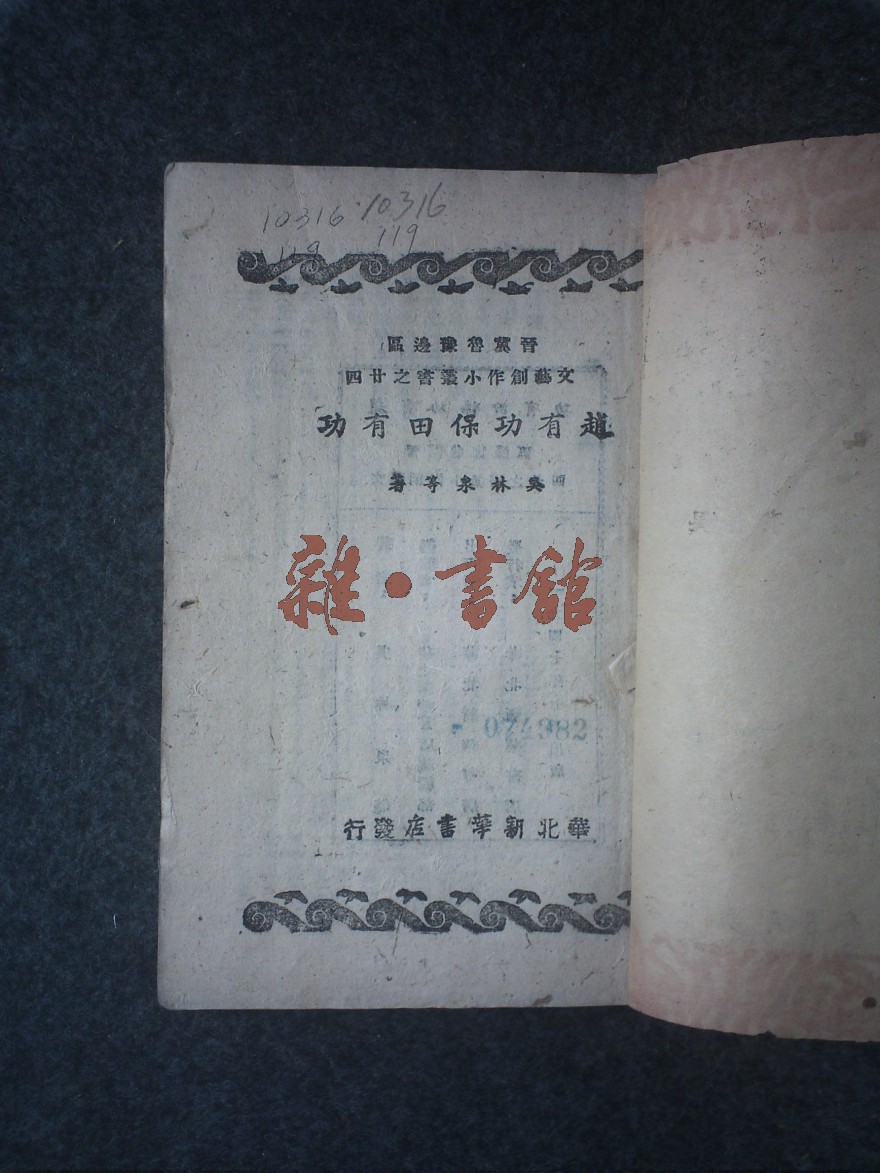 10316 10316
119 119
晉冀魯豫邊區
文藝創作小叢書之廿四
趙有功保田有功
吳林泉等著
雜·書舘
074982
華北新華書店發行